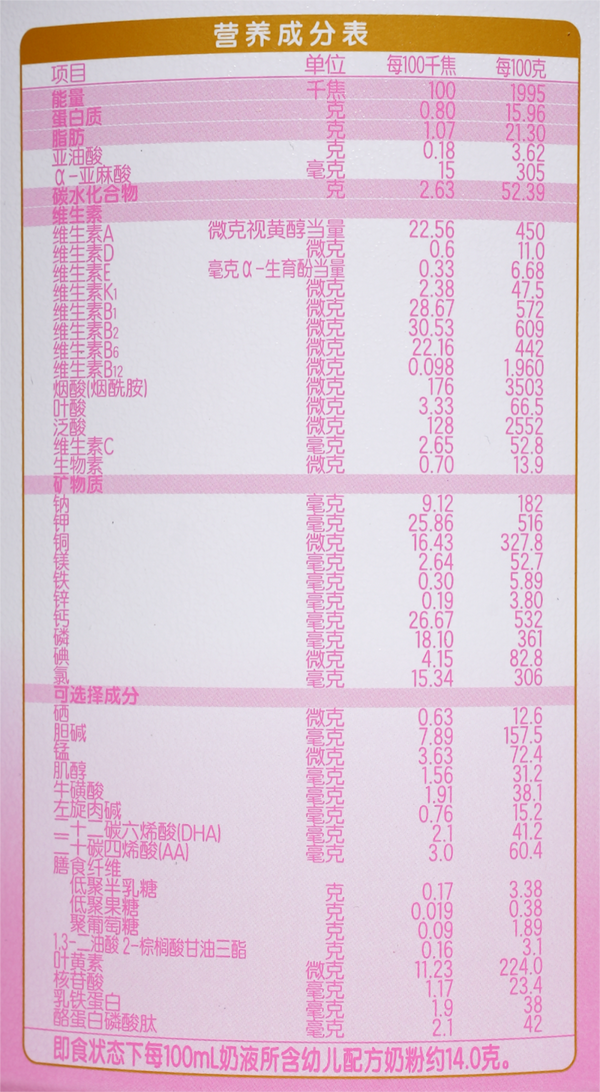 营养成分表
项目 单位 每100千焦 每100克
能量 千焦 100 1995
蛋白质 克 0.80 15.96
脂肪 克 1.07 21.30
亚油酸 克 0.18 3.62
α-亚麻酸 毫克 15 305
碳水化合物 克 2.63 52.39
维生素
维生素A 微克视黄醇当量 22.56 450
维生素D 微克 0.6 11.0
维生素E 毫克α-生育酚当量 0.33 6.68
维生素K1 微克 2.38 47.5
维生素B1 微克 28.67 572
维生素B2 微克 30.53 609
维生素B6 微克 22.16 442
维生素B12 微克 0.098 1.960
烟酸(烟酰胺) 微克 176 3503
叶酸 微克 3.33 66.5
泛酸 微克 128 2552
维生素C 毫克 2.65 52.8
生物素 微克 0.70 13.9
矿物质
钠 毫克 9.12 182
钾 毫克 25.86 516
铜 微克 16.43 327.8
镁 毫克 2.64 52.7
铁 毫克 0.30 5.89
锌 毫克 0.19 3.80
钙 毫克 26.67 532
磷 毫克 18.10 361
碘 微克 4.15 82.8
氯 毫克 15.34 306
可选择成分
硒 微克 0.63 12.6
胆碱 毫克 7.89 157.5
锰 微克 3.63 72.4
肌醇 毫克 1.56 31.2
牛磺酸 毫克 1.91 38.1
左旋肉碱 毫克 0.76 15.2
二十二碳六烯酸(DHA) 毫克 2.1 41.2
二十碳四烯酸(AA) 毫克 3.0 60.4
膳食纤维
低聚半乳糖 克 0.17 3.38
低聚果糖 克 0.019 0.38
聚葡萄糖 克 0.09 1.89
1,3-二油酸 2-棕榈酸甘油三酯 克 0.16 3.1
叶黄素 微克 11.23 224.0
核苷酸 毫克 1.17 23.4
乳铁蛋白 毫克 1.9 38
酪蛋白磷酸肽 毫克 2.1 42
即食状态下每100mL奶液所含幼儿配方奶粉约14.0克。